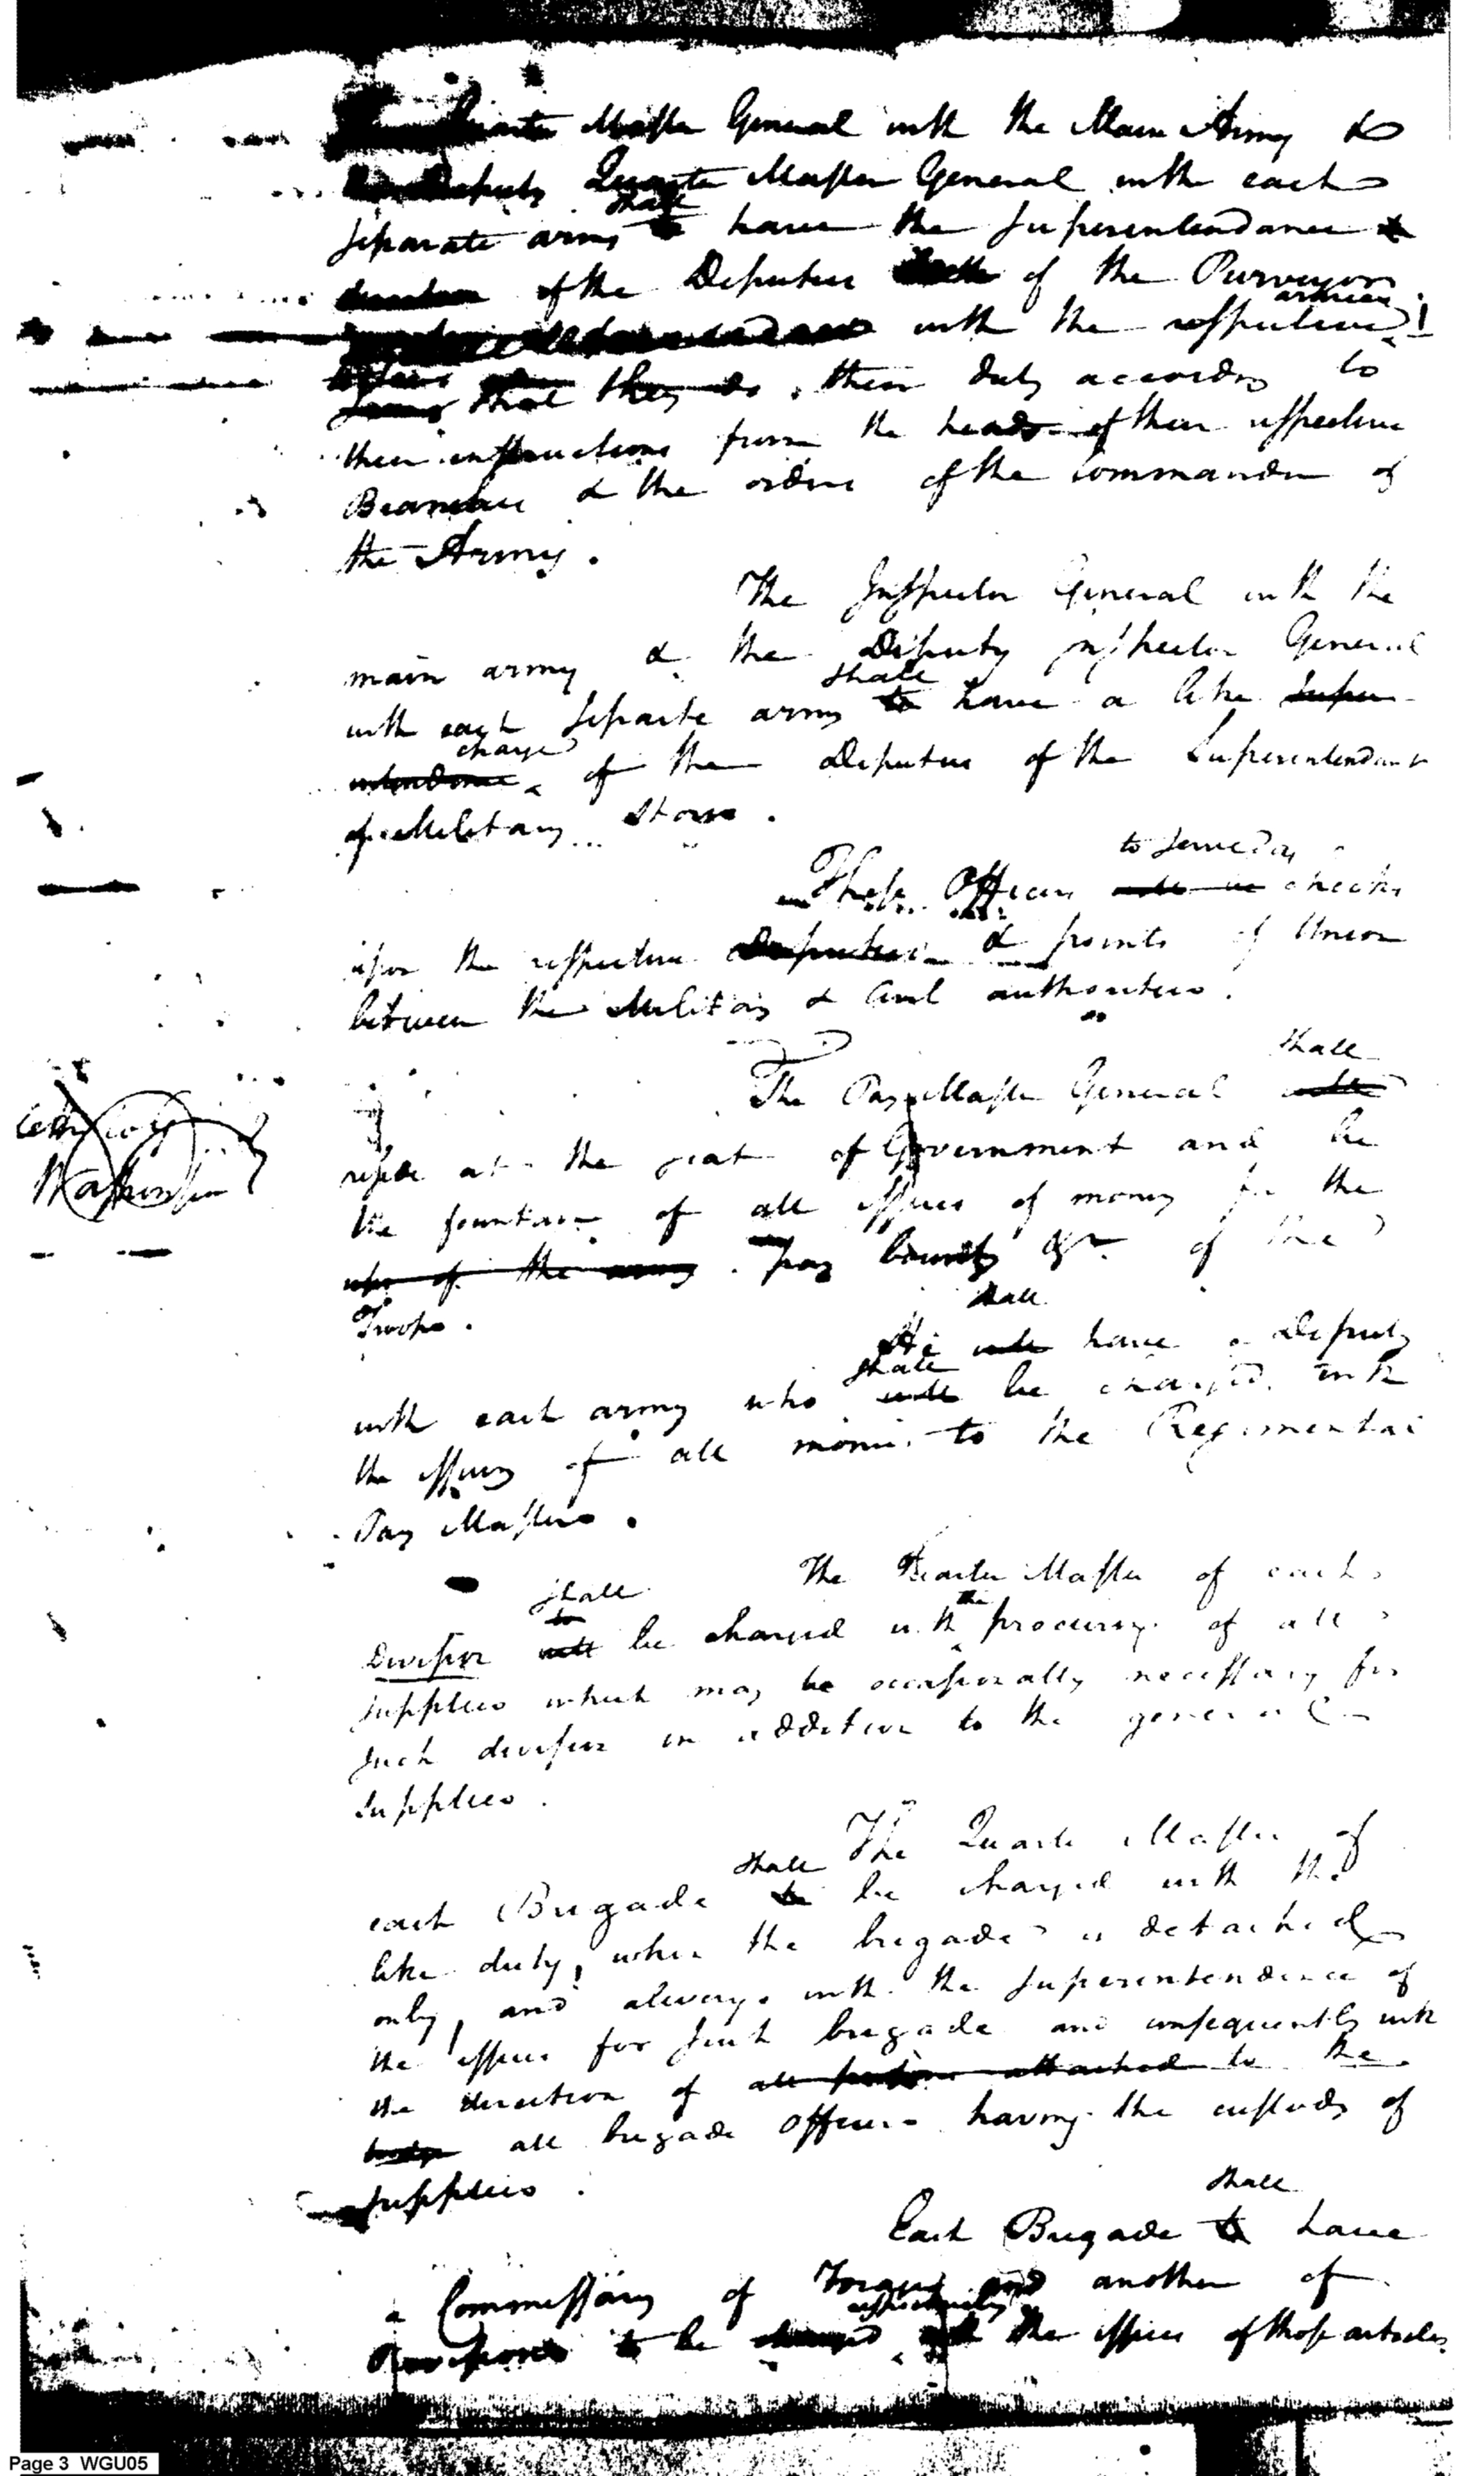 Quarter Master General with the Main Army &
Deputy Quarter Master General with each
shall
separate army to have the Superintendance &
of the Deputies of the Purveyor
armies
with the respective
that they do their duty according to
their instructions from the heads of their respective
Branches & the orders of the commander of
the Army.
The Inspector General with the
main army & the Deputy Inspector General
shall
with each separate army to have a like super
charge
intendance of the Deputies of the Superintendant
of Military Stores.
to serve as
These Officers will be checks
upon the respective Deputies & points of Union
between the Military & Civil authorities.
shall
The Pay Master General will
reside at the seat of Government and be
the fountain of all issues of money for the
use of the army. pay bounty &c of the
Troops.
shall
He will have a Deputy
shall
with each army who will be charged with
the issuing of all monies to the Regimental
Pay Masters.
The Quarter Master of each
shall
to the
Division will be charged with procuring of all
supplies which may be occasionally necessary for
such division in addition to the general
supplies.
The Quarter Master of
shall
each Brigade to be charged with the
like duty, when the brigade is detached
only, and always with the superintendence of
the issues for such brigade and consequently with
the direction of all persons attached to the
all brigade officers having the custody of
supplies.
shall
Each Brigade to have
a Commissary of Forage and another of
respectively
Provisions to be charged with the issues of those articles
Washington
Page 3 WGU05